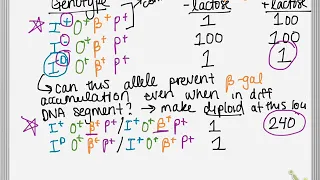 Genotype -lactose +lactose
I⁺ O⁺ β⁺ P⁺ 1 100
I⁻ O⁺ β⁺ P⁺ 100 100
Iᴰ O⁺ β⁺ P⁺ 1 1
↳ can this allele prevent β-gal
accumulation even when in diff
DNA segment? → make diploid at this lou
I⁺ O⁺ β⁺ P⁺/I⁺ O⁺ β⁺ P⁺ 1 240
Iᴰ O⁺ β⁺ P⁺/I⁺ O⁺ β⁺ P⁺ 1